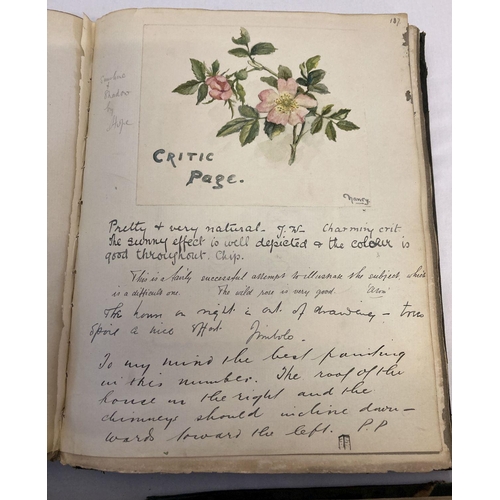 181
by
CRITIC
Page.
Nancy
Pretty & very natural - J.W. Charming crit.
The sunny effect is well depicted & the colour is
good throughout. Chip.
This is a fairly successful attempt to illustrate the subject, which
is a difficult one. The wild rose is very good.
The house on right is out of drawing - trees
spoil a nice effort Jimbolo.
To my mind the best painting
in this number. The roof of the
house on the right and the
chimneys should incline down-
wards toward the left. P.P